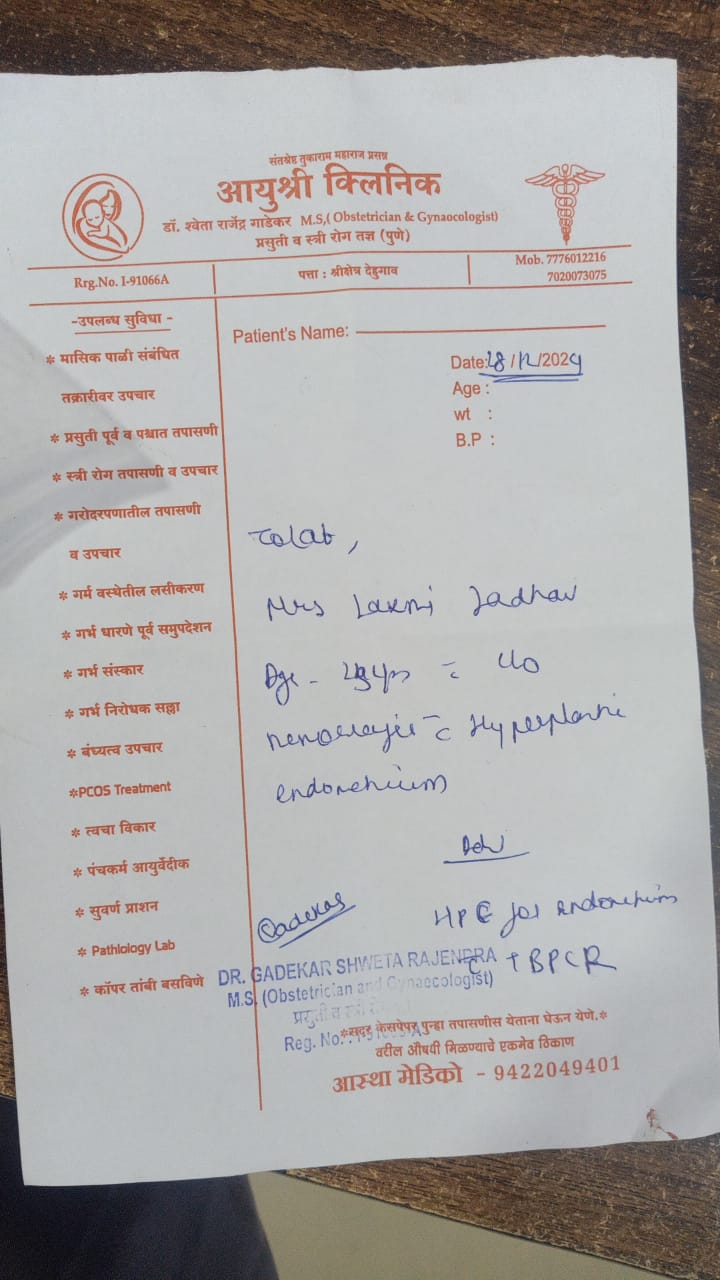 संतश्रेष्ठ तुकाराम महाराज प्रसन्न
आयुश्री क्लिनिक
डॉ. श्वेता राजेंद्र गाडेकर M.S,( Obstetrician & Gynaocologist)
प्रसुती व स्त्री रोग तज्ञ (पुणे)
Rrg.No. I-91066A
पत्ता : श्रीक्षेत्र देहुगाव
Mob. 7776012216
7020073075
-उपलब्ध सुविधा -
* मासिक पाळी संबंधित
तक्रारीवर उपचार
* प्रसुती पूर्व व पश्चात तपासणी
* स्त्री रोग तपासणी व उपचार
* गरोदरपणातील तपासणी
व उपचार
* गर्म वस्थेतील लसीकरण
* गर्भ धारणे पूर्व समुपदेशन
* गर्भ संस्कार
* गर्भ निरोधक सल्ला
* बंध्यत्व उपचार
*PCOS Treatment
* त्वचा विकार
* पंचकर्म आयुर्वेदीक
* सुवर्ण प्राशन
* Pathlology Lab
* कॉपर तांबी बसविणे
Patient's Name:
Date: 28/12/2024
Age :
wt :
B.P :
To Lab,
Mrs Laxmi Jadhav
Age -
endometrium
Adv
HPE for endometrium
+ BPCR
Gadekar
DR. GADEKAR SHWETA RAJENDRA
M.S. (Obstetrician and Gynaecologist)
प्रसुती व स्त्री
Reg. No.
*सदर केसपेपर पुन्हा तपासणीस येताना घेऊन येणे.*
वरील औषधी मिळण्याचे एकमेव ठिकाण
आस्था मेडिको - 9422049401